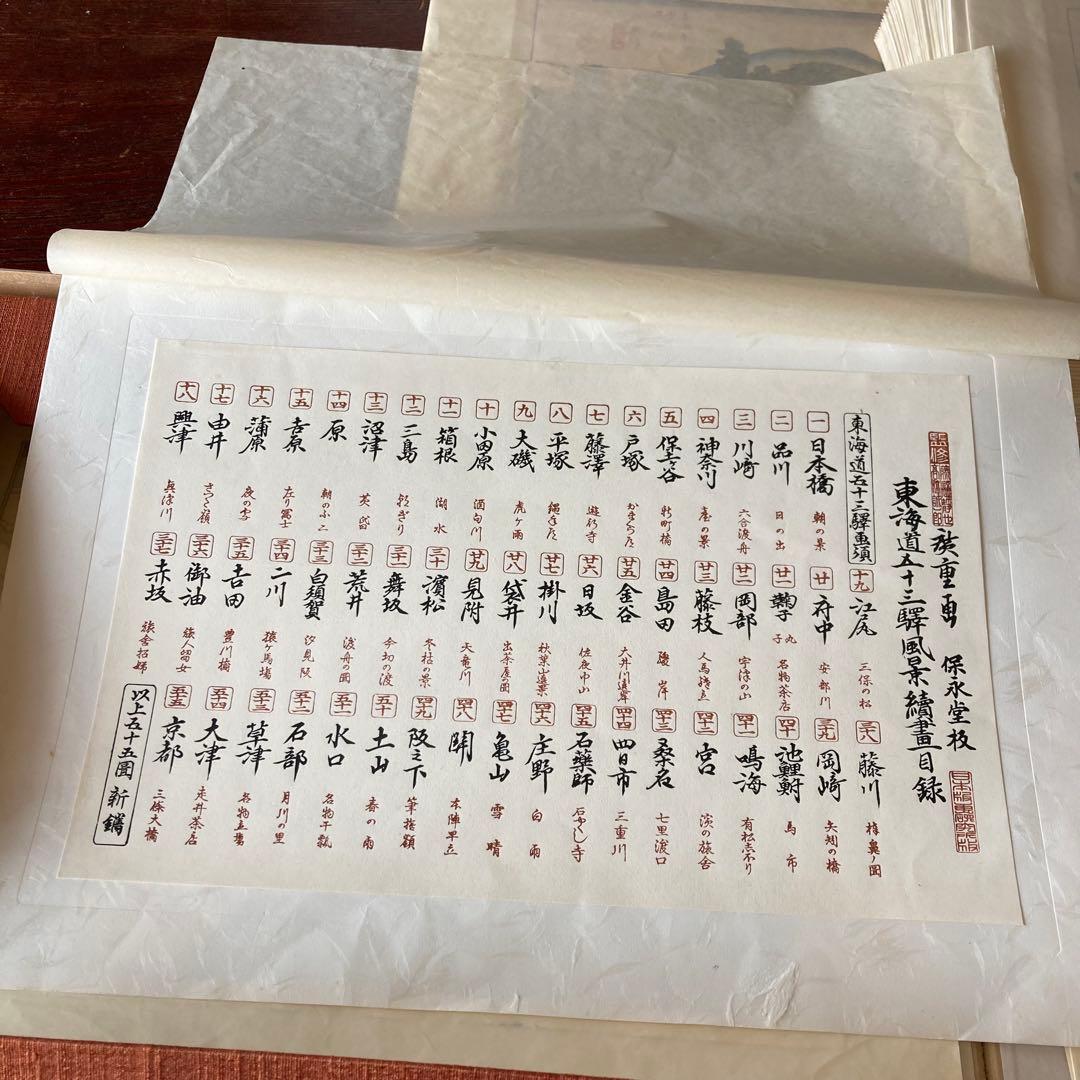 廣重画 保永堂板
東海道五十三驛風景續畫目録
東海道五十三驛畫須
一 日本橋 朝の景
二 品川 日の出
三 川崎 六合渡舟
四 神奈川 臺の景
五 保土ヶ谷 新町橋
六 戸塚
七 藤澤 遊行寺
八 平塚 縄手道
九 大磯 虎ヶ雨
十 小田原 酒匂川
十一 箱根 湖水
十二 三島 朝ぎり
十三 沼津 黄昏
十四 原 朝のふじ
十五 吉原 左り富士
十六 蒲原 夜の雪
十七 由井 さつた嶺
十八 興津 興津川
十九 江尻 三保の松
廿 府中 安部川
廿一 鞠子 丸子 名物茶店
廿二 岡部 宇津の山
廿三 藤枝 人馬継立
廿四 島田 駿岸
廿五 金谷 大井川遠岸
廿六 日坂 佐夜中山
廿七 掛川 秋葉山遠景
廿八 袋井 出茶屋の圖
廿九 見附 天竜川
三十 濱松 冬枯の景
三十一 舞坂 今切の渡
三十二 荒井 渡舟の圖
三十三 白須賀 汐見阪
三十四 二川 猿ヶ馬場
三十五 吉田 豊川橋
三十六 御油 旅人留女
三十七 赤坂 旅舎招婦
三十八 藤川 棒鼻ノ圖
三十九 岡崎 矢矧の橋
四十 池鯉鮒 馬市
四十一 鳴海 有松志ぼり
四十二 宮 濱の旅舎
四十三 桑名 七里渡口
四十四 四日市 三重川
四十五 石藥師 石やくし寺
四十六 庄野 白雨
四十七 亀山 雪晴
四十八 関 本陣早立
四十九 阪之下 筆捨嶺
五十 土山 春の雨
五十一 水口 名物干瓢
五十二 石部 目川の里
五十三 草津 名物立場
五十四 大津 走井茶店
五十五 京都 三條大橋
以上五十五圖 新鐫